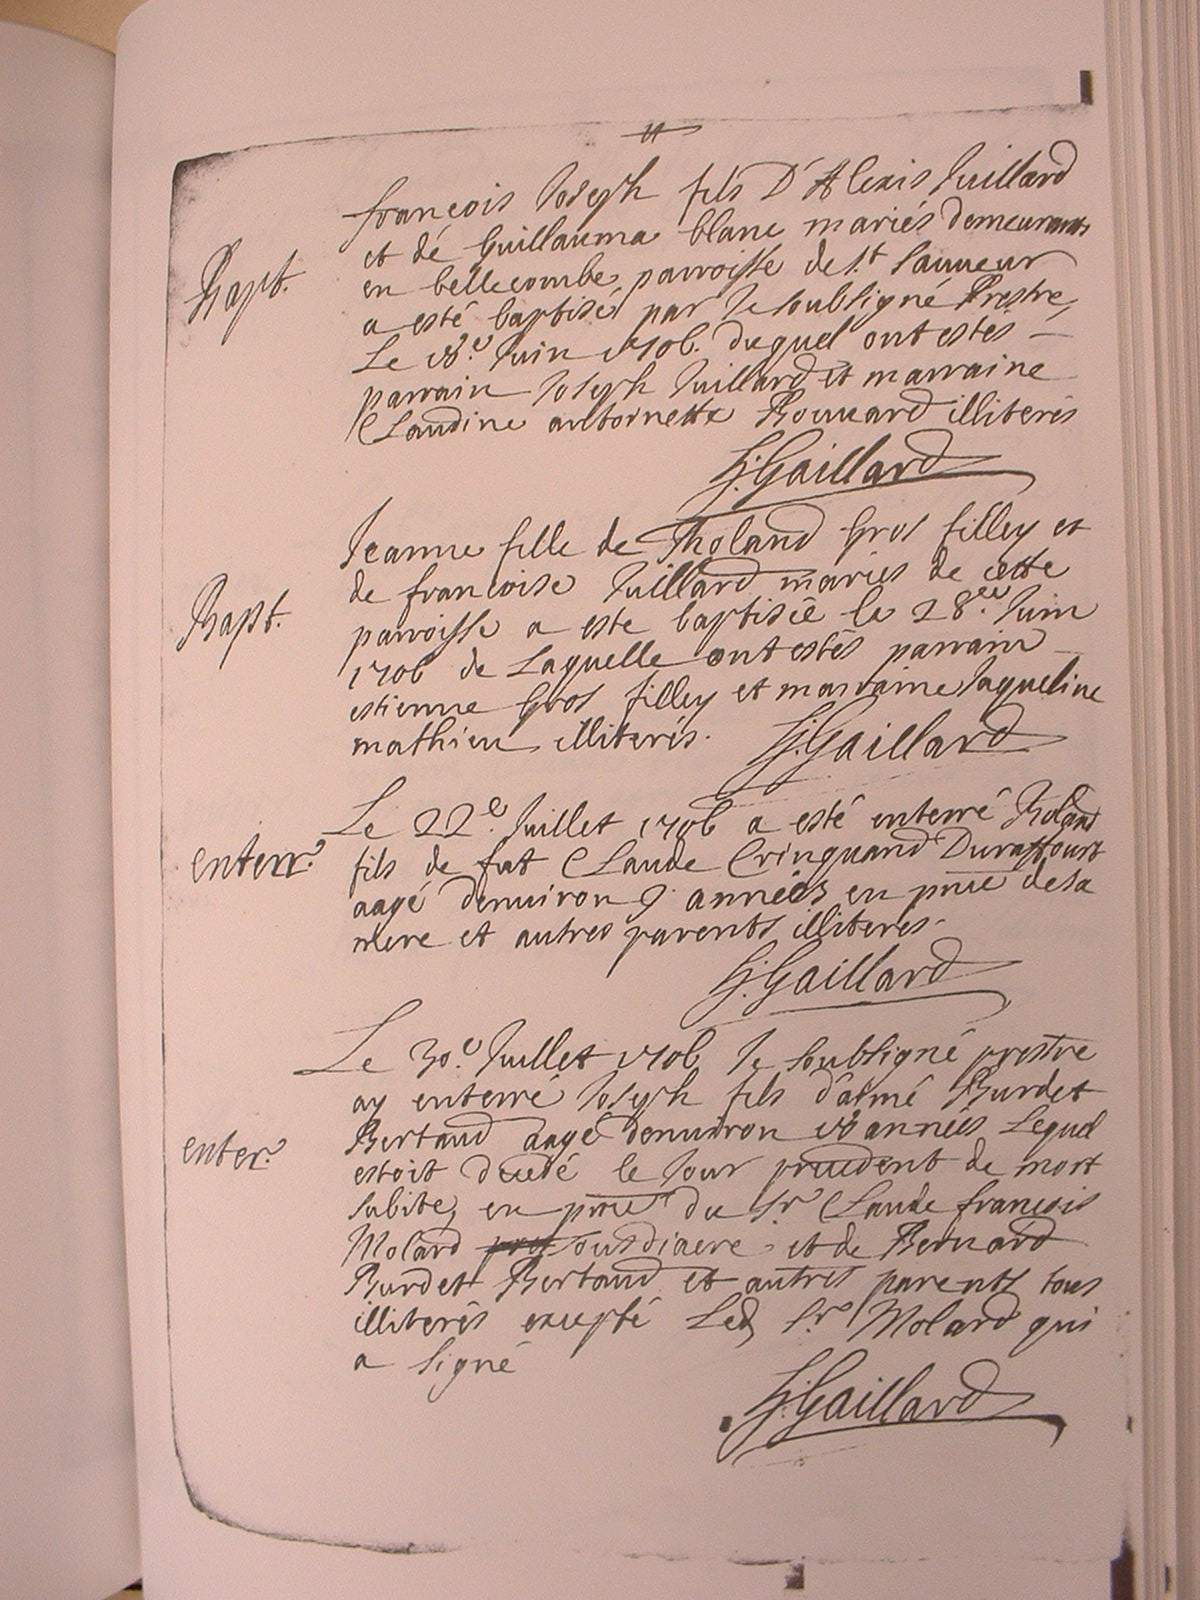 françois Joseph fils D'Alexis Juillard
et dé Guillauma blanc mariés demeurants
Bapt.
en bellecombe parroisse de st. Sauveur
a esté baptisé par le soubsigné Prestre
Le 18.e Juin 1706. duquel ont estés –
parrain Joseph Juillard et marraine
Claudine antoinette Bouuard illiterés
G. Gaillard
Jeanne fille de Roland Gros filley et
de francoise Juillard mariés de cette
Bapt.
parroisse a este baptisée le 28.e Juin
1706 de Laquelle ont estés parrain
estienne Gros filley et marraine Jaqueline
mathieu illiterés.
G. Gaillard
Le 22e. Juillet 1706 a esté enterré Roland
enterr.
fils de fut Claude Cringuand Duraffourt
aagé denuiron 9 années en pnce de sa
mere et autres parents illiteres.
G. Gaillard
Le 30.e Juillet 1706 Je soubsigné prestre
ay enterré Joseph fils d'aimé Burdet
enter.
Bertaud aagé denuiron 18 années Lequel
estoit decedé le Jour precedent de mort
subite, en pnce du Sr Claude françois
Molard sousdiacre et de Bernard
Burdet Bertaud et autres parents tous
illiterés excepté Led. Sr. Molard qui
a signé
G. Gaillard